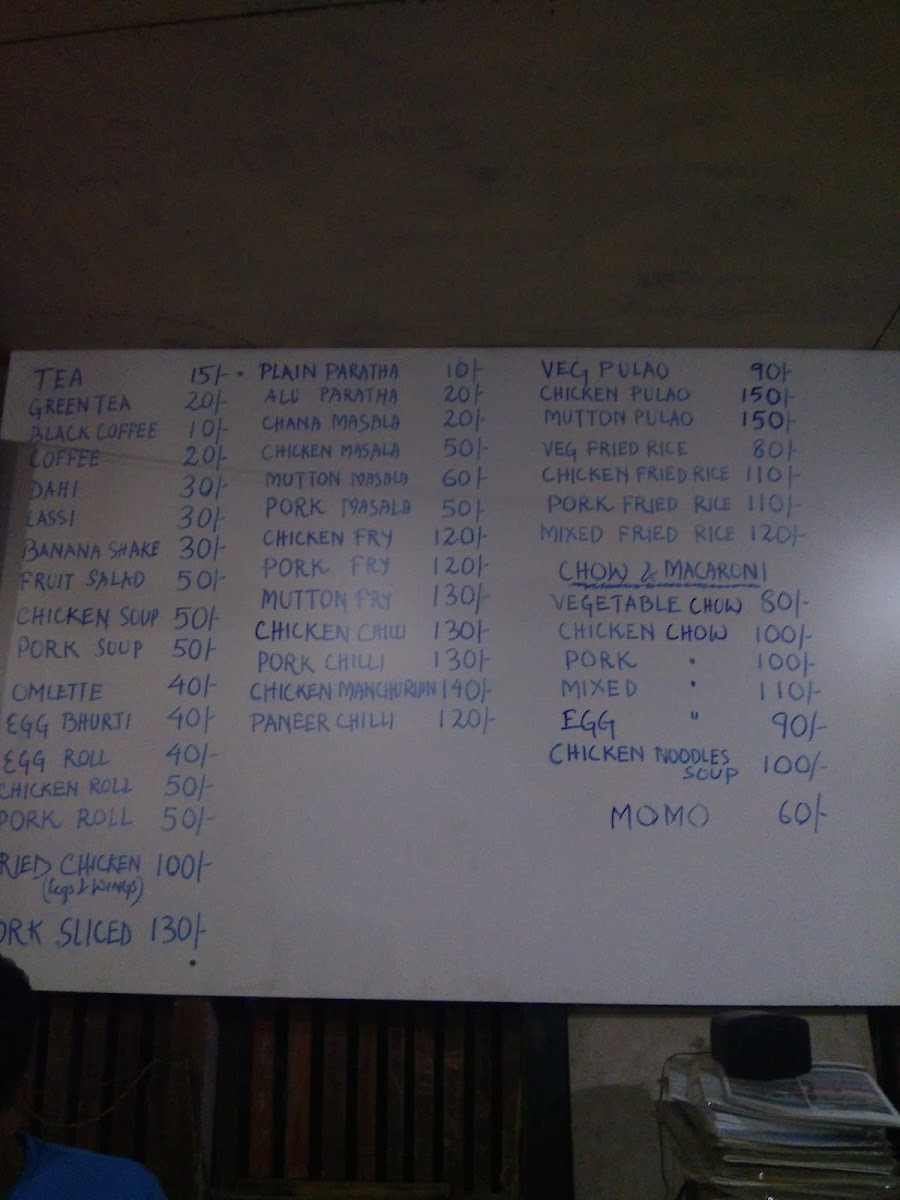 TEA 15/-
GREEN TEA 20/-
BLACK COFFEE 10/-
COFFEE 20/-
DAHI 30/-
LASSI 30/-
BANANA SHAKE 30/-
FRUIT SALAD 50/-
CHICKEN SOUP 50/-
PORK SOUP 50/-
OMLETTE 40/-
EGG BHURJI 40/-
EGG ROLL 40/-
CHICKEN ROLL 50/-
PORK ROLL 50/-
RIED CHICKEN 100/-
(legs & WINGS)
ORK SLICED 130/-
PLAIN PARATHA 10/-
ALU PARATHA 20/-
CHANA MASALA 20/-
CHICKEN MASALA 50/-
MUTTON MASALA 60/-
PORK MASALA 50/-
CHICKEN FRY 120/-
PORK FRY 120/-
MUTTON FRY 130/-
CHICKEN CHILLI 130/-
PORK CHILLI 130/-
CHICKEN MANCHURIAN 140/-
PANEER CHILLI 120/-
VEG PULAO 90/-
CHICKEN PULAO 150/-
MUTTON PULAO 150/-
VEG FRIED RICE 80/-
CHICKEN FRIED RICE 110/-
PORK FRIED RICE 110/-
MIXED FRIED RICE 120/-
CHOW & MACARONI
VEGETABLE CHOW 80/-
CHICKEN CHOW 100/-
PORK " 100/-
MIXED " 110/-
EGG " 90/-
CHICKEN NOODLES 100/-
SOUP
MOMO 60/-